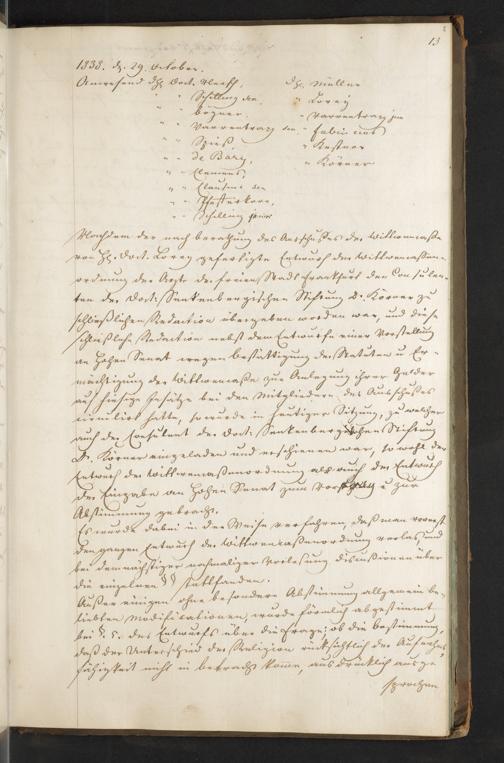 13
1838. d. 29. October.
Anwesend HH. Doct. Neeff, Hr. Müller
" " Schilling sen. " Lorey
" " Bögner. " Varrentrapp jun
" " Varrentrapp sen. " Fabricius
" " Spieß " Kestner
" " de Bary, " Körner
" " Clemens,
" " Clausius sen
" " Pfefferkorn,
" " Schilling junior
Nachdem der nach berathung des Ausschußes der Wittwencasse
von H. Doct. Lorey gefertigte Entwurf der Wittwencassen-
ordnung der Ärzte der freien Stadt Frankfurt dem Consulen-
ten der Doct. Senkenbergischen Stiftung Dr. Körner zur
schließlichen Redaction übergeben worden war, und diese
schließliche Redaction nebst dem Entwurfe einer Vorstellung
an Hohen Senat wegen bestättigung der Statuten u Er-
mächtigung der Wittwencasse zur Anlegung ihrer Gelder
auf hiesige Insätze bei den Mitgliedern des Ausschußes
circulirt hatte, so wurde in heutiger Sitzung, zu welcher
auch der Consulent der Doct. Senkenbergischen Stiftung
Dr. Körner eingeladen und erschienen war, sowohl der
Entwurf der Wittwencassenordnung als auch der Entwurf
der Eingabe an Hohen Senat zum Vortrag u zur
Abstimmung gebracht.
Es wurde dabei in der Weise verfahren, daß man vorerst
den ganzen Entwurf der Wittwencassenordnung verlas und
bei demnächstiger nochmaliger Vorlesung discussionen über
die einzelnen §§ stattfanden.
Außer einigen ohne besondere Abstimmung allgemein be-
liebten Modificationen, wurde förmlich abgestimmt
bei §. 5. des Entwurfs über die Frage: ob die bestimmung,
daß der Unterschied der Religion rücksichtlich der Aufnahms
fähigkeit nicht in betracht komme, ausdrücklich ausge
sprochen